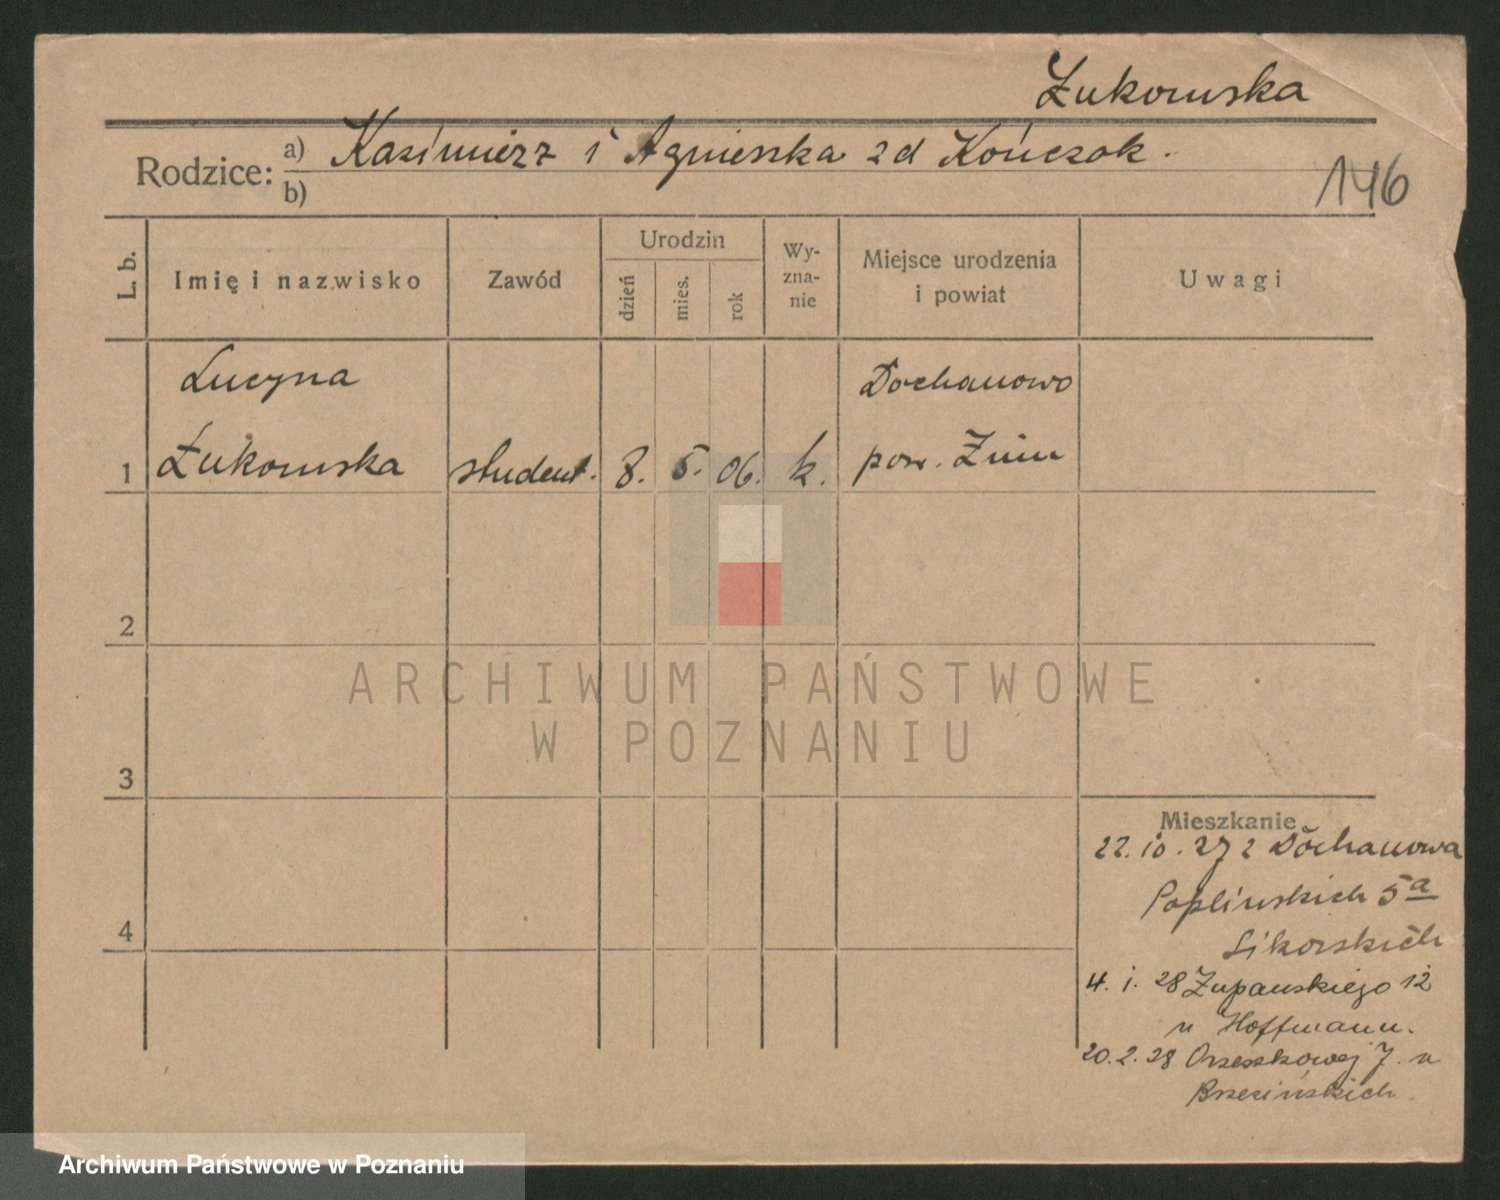 Żukowska
Rodzice: a) Kazimierz i Agnieszka zd Kończak.
b)
146
L. b.
Imię i nazwisko
Zawód
Urodzin
dzień
mies.
rok
Wy-
zna-
nie
Miejsce urodzenia
i powiat
Uwagi
Lucyna
Dochanowo
1 Żukowska student. 8. 5. 06. k. pow. Żnin
2
3
4
ARCHIWUM PAŃSTWOWE
W POZNANIU
Mieszkanie
22.10.27 z Dochanowa
Poplińskich 5a
Sikorskich
4. 1. 28 Żupańskiego 12
u Hoffmann.
20.2.28 Orzeszkowej 7. u
Brzezińskich.
Archiwum Państwowe w Poznaniu